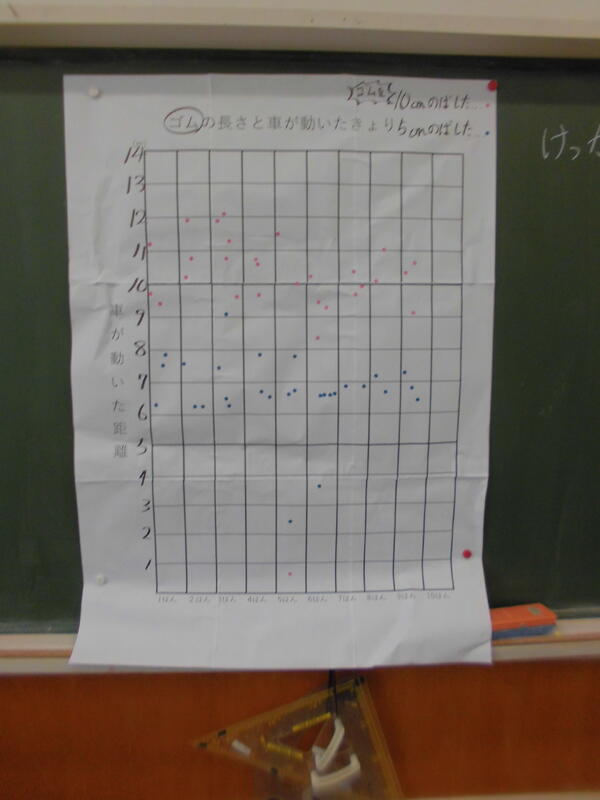 ゴムを10cmのばした…
ゴムの長さと車が動いたきょり5cmのばした…
けっか
14
13
12
11
10
9
8
7
6
5
4
3
2
1
車が動いた距離
1はん 2はん 3はん 4はん 5はん 6はん 7はん 8はん 9はん 10はん